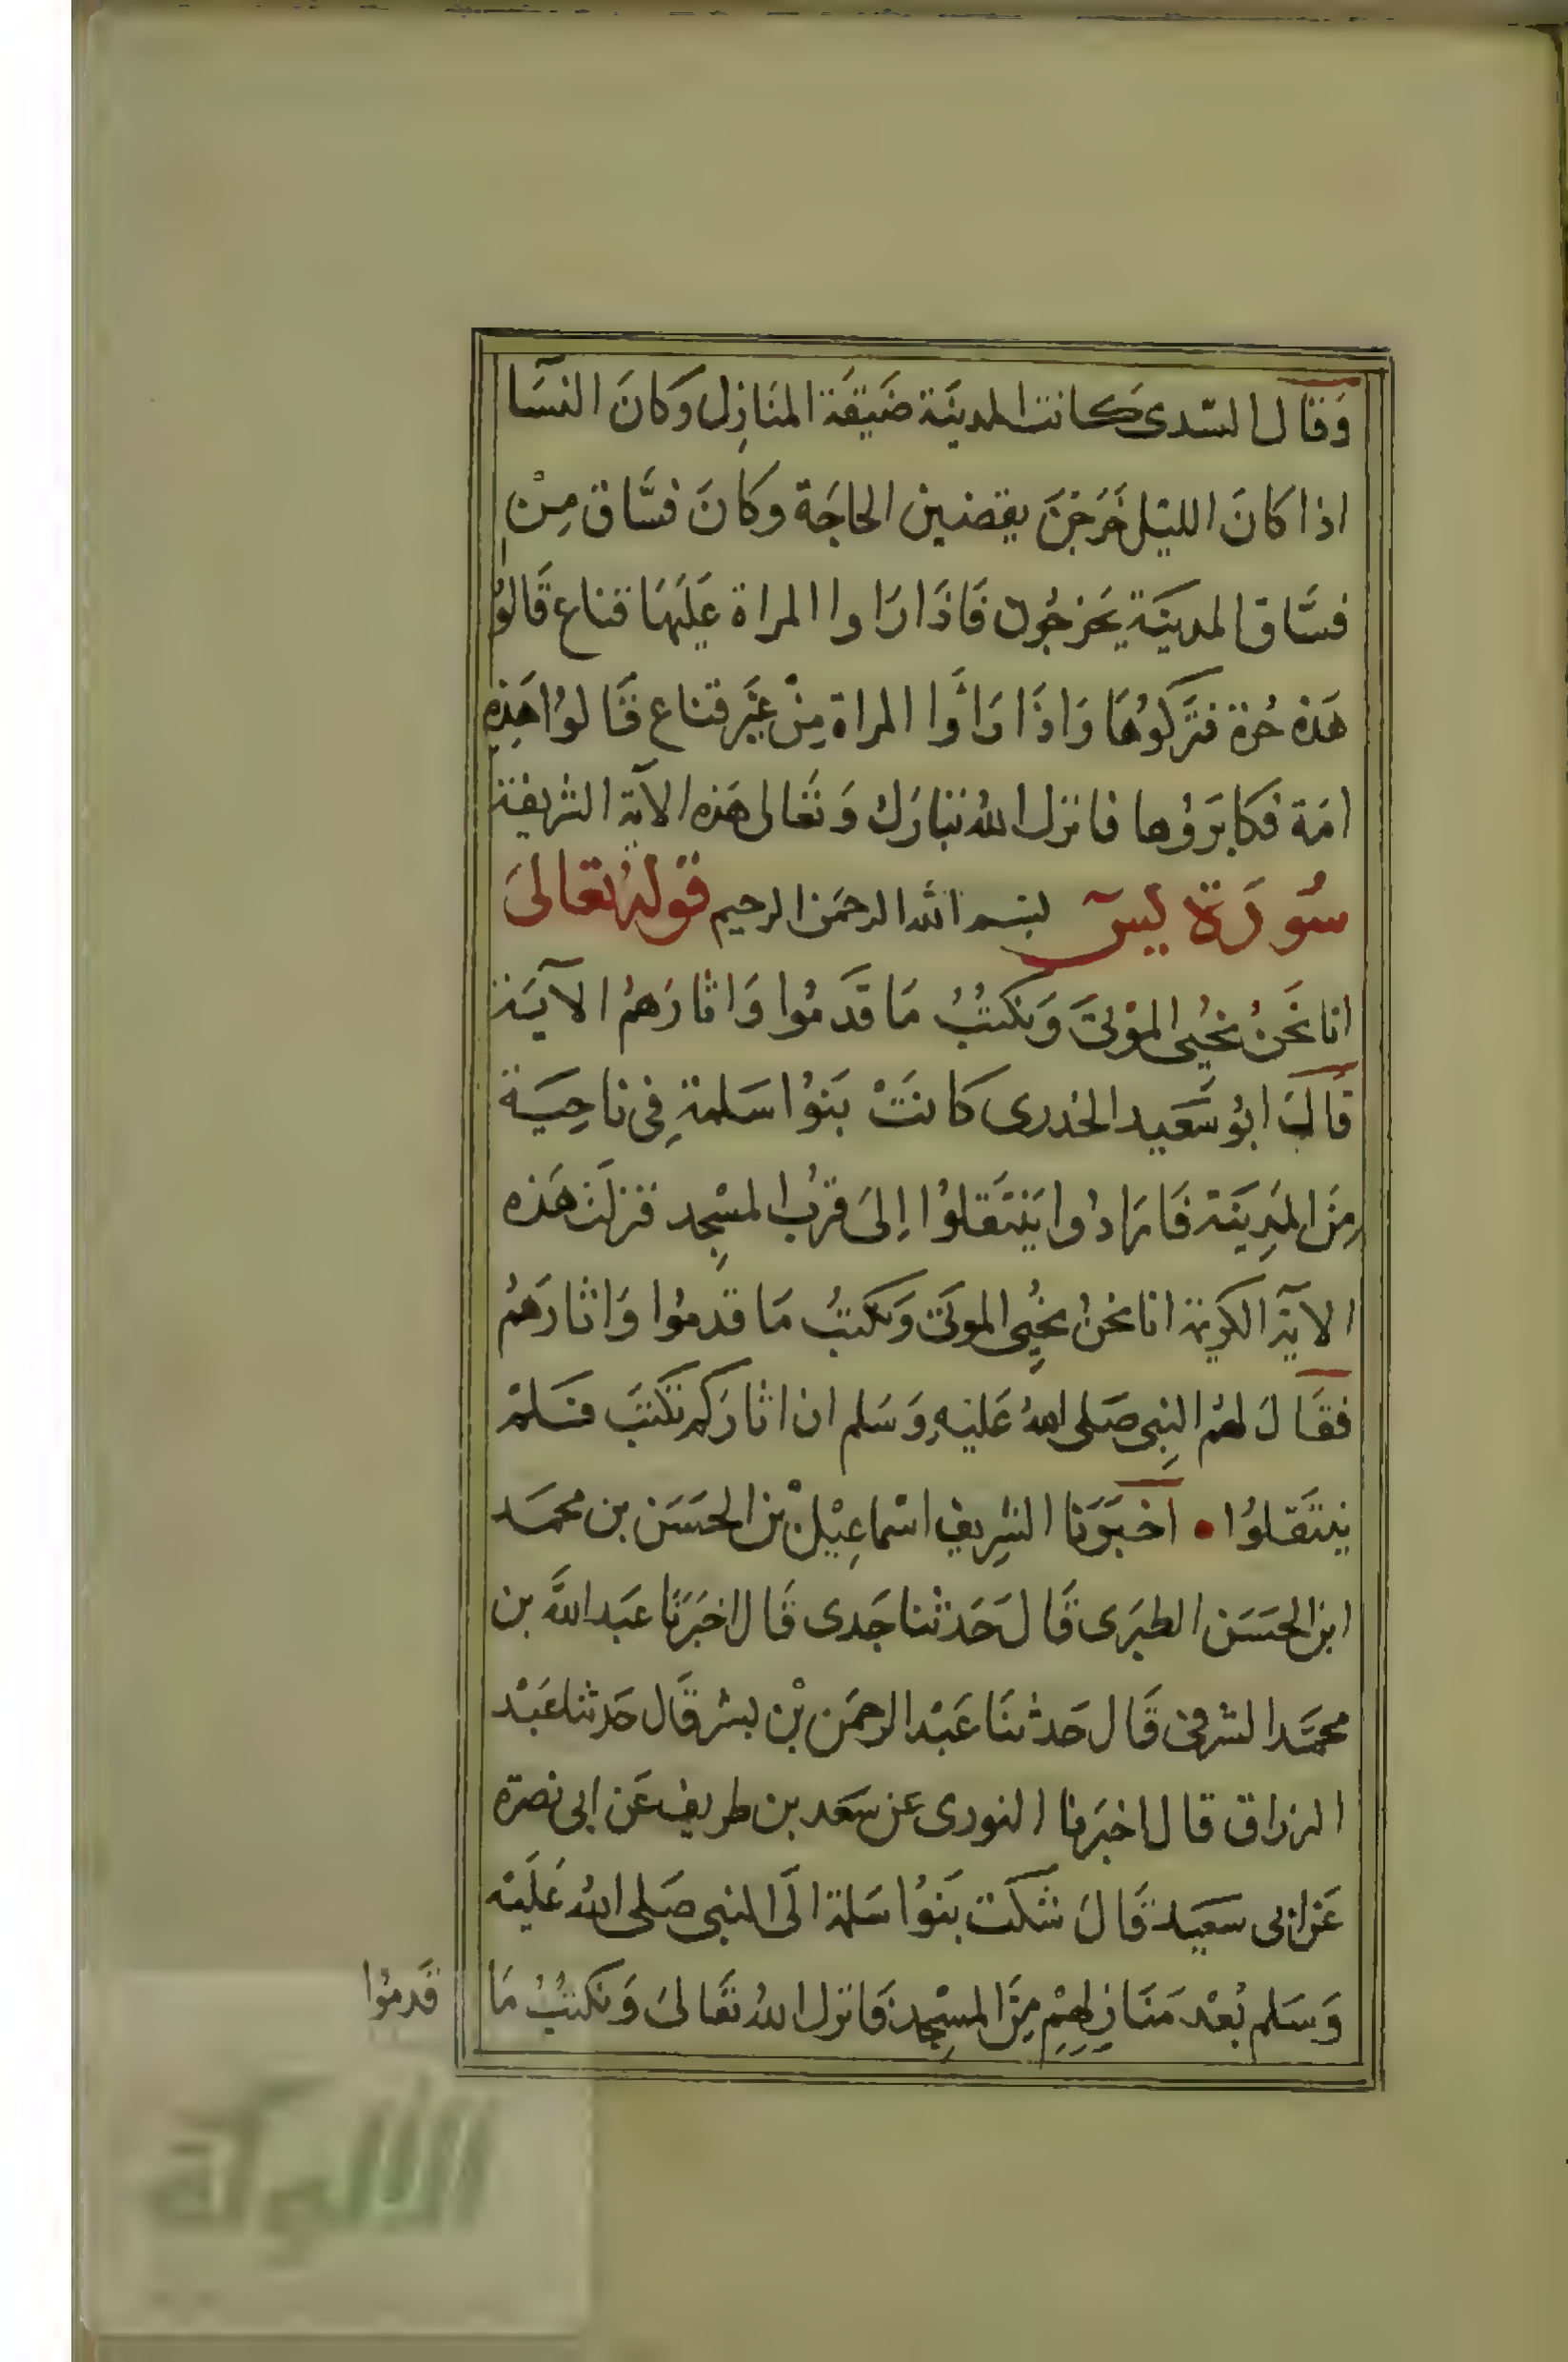 وَقَال السّدى كانت المدينَة ضَيقَة المنَازِل وَكانَ النسَا
اذا كانَ الليَل خَرَجْنَ يقضين الحاجَة وكَانَ فسَّاق مِنْ
فسَّاق المدينَة يَخرجُون فَاذَا رَاوا المراة عَلَيهَا قناع قَالوُا
هَذه حُرة فتَركوُهَا وَاذَا رَاَوا المراة مِنْ غيَر قناع قَالوُا هَذِهِ
امَة فكابَروُها فانزل اللهُ تبَارَك وَتعَالى هَذه الاية الشريفة
سُورَة يسَ بسم الله الرحمَن الرحيم قولهُ تعَالىَ
انا نَحنُ نحُيى الموْتىَ وَنكتُبُ مَا قَدمُوا وَاثارَهمُ الآيَة
قَالَ ابوُ سَعَيد الخدرى كانَتْ بَنوُا سَلمة فِى ناحِيَة
مِنَ المَدِينَة فَارَادُوا يَنتَقلوُا إلىَ قرُب المسْجِد فنزلَت هَذه
الآية الكريمة انا نحنُ نحُيِى الموتىَ وَنكتبُ مَا قدموُا وَاثارَهمُ
فقَالَ لهمُ النِبى صَلى اللهُ عَليَهِ وَسَلم ان اثارَكم تكتبَ فَلمْ
ينتَقلوُا • اخبَرَنا الشرِيف اسْماعِيْل بْن الحَسَن بن محمَد
ابن الحسَن الطبَرى قَالَ حَدثنا جَدى قَال اخبَرَنا عبَد اللَّه بن
محمَّد الشرقى قَال حَدثنَا عَبْد الرحمَن بْن بشر قَال حَدثنا عَبْد
الرزاق قال اخبَرنا الثورى عَن سَعَد بن طريف عَن ابى نضرَة
عَن ابى سعَيد قَالَ شكَت بَنوُا سَلمة الَى النبى صَلى اللهُ عَلَيْه
وَسَلم بُعْد مَنَازِلِهِمْ مِنَ المسْجِد فَانزل اللهُ تعَالىَ وَنكتُبُ مَا
قَدمُوا
الألوكة